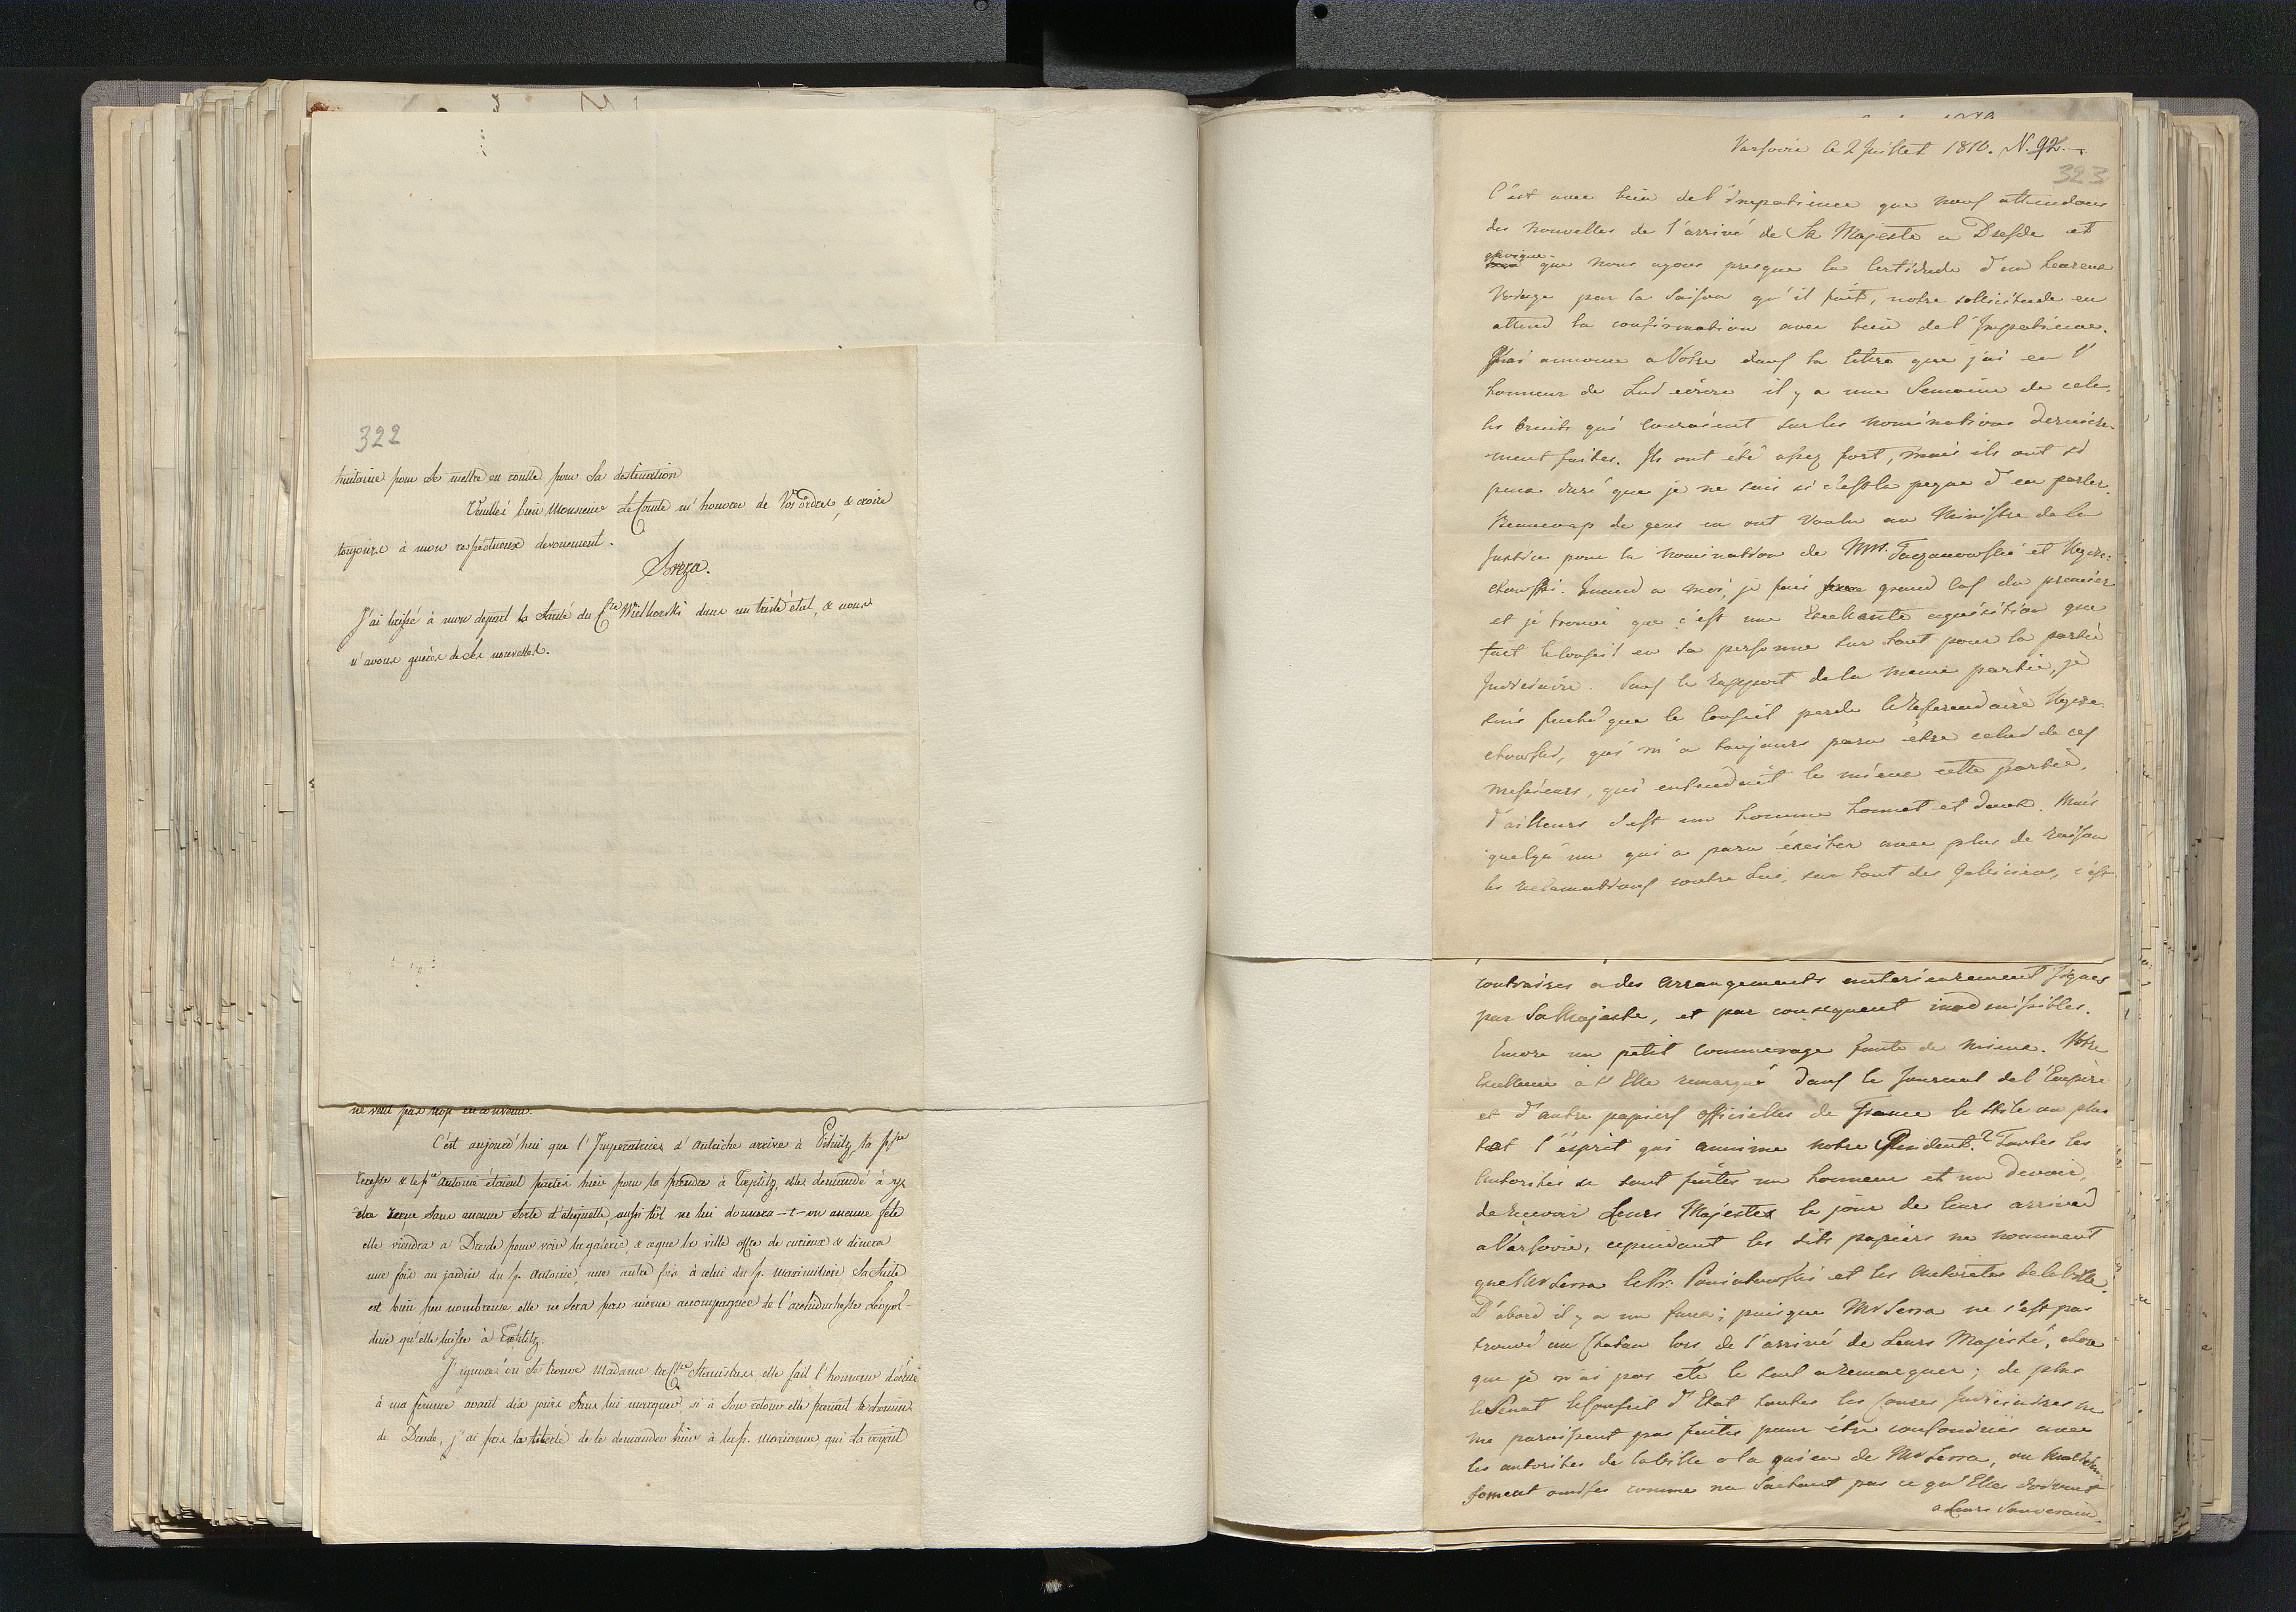 322
huitaine pour se mettre en routte pour sa destination
Veuillés bien Monsieur Le Comte m'honorer de Vos ordres, & croire
toujours à mon respectueux devouement.
Breza.
J'ai laissé à mon depart la Santé du Cte Wielhorski dans un triste état, & nous
n'avons guères de ses nouvelles.
ne vont pas trop en
C'est aujourd'hui que l'Imperatrice d'Autriche arrive à la Psse
Teresse & le pce Antoine étaient partis hier pour la prendre à Toeplitz, elle demandé à n'y
être reçue sans aucune sorte d'etiquette, aussi tôt ne lui donnera-t-on aucune fête
elle viendra a Dresde pour voir la galerie, & ceque la ville offre de curieux & dinera
une fois au jardin du p. Antoine, une autre fois à celui du p. Maximilien Sa Suite
est bien peu nombreuse, elle ne sera pas même accompagnée de l'archiduchesse Léopol-
dine qu'elle laisse à Toeplitz.
J'ignore où se trouve Madame la Ctsse Stanislas, elle fait l'honneur d'écrire
à ma femme avant dix jours sans lui marquer, si à son retour elle prenait le chemin
de Dresde, j'ai pris la liberté de le demander hier à la p. Marianne, qui la croyait
Varsovie le 2 Juillet 1810. N. 92.
323
C'est avec bien de l'impatience que nous attendons
des nouvelles de l'arrivé de Sa Majesté a Dresde et
quoique que nous ayons presque la certitude d'un heureux
Voiage par la saison qu'il fait, notre sollicitude en
attend la confirmation avec bien de l'Impatience.
J'ai annoncé a Votre dans la lettre que j'ai eu l'
honneur de Lui écrire il y a une Semaine de cela,
les bruits qui couraient sur les nominations derniere-
ment faites. Ils ont été assez fort, mais ils ont si
peux duré que je ne sais si c'est la peyne d'en parler.
Beaucoup de gens en ont voulu au Ministre de la
Justice pour la nomination de Mrs.
Quand a moi, je fais grand cas du premier
et je trouve que c'est une Excellente aquisition que
fait le Conseil en sa personne sur tout pour la partie
Judiciaire. Sous le rapport de la meme partie, je
suis faché que le Conseil perde le Referendaire
qui m'a toujours paru etre celui de ces
messieurs, qui entendait le mieux cette partie,
d'ailleurs c'est un homme honnet et doux. Mais
quelqu'un qui a paru éxciter avec plus de raison
les reclamations contre Lui, sur tout des Galliciens, c'est
contraires a des arrangements anterieurement signes
par Sa Majeste, et par consequent inadmissibles.
Encore un petit commerage faute de mieux. Votre
Excellence a t'Elle remarqué dans le Journal de l'Empire
et d'autre papiers officielles de France le stile ou plus
tot l'ésprit qui annime notre Resident? Toutes les
Autorités se sont faites un honneur et un devoir,
de recevoir Leurs Majestes le jour de leurs arrivé
a Varsovie, cependant les dits papiers ne nomment
que Mr Serra le Pr. Poniatowski et les Autorites de la Ville.
D'abord il y a un faux; puisque Mr Serra ne s'est pas
trouvé au Chateau lors de l'arrivé de Leurs Majesté, chose
que je n'ai pas été le seul a remarquer; de plus
le Senat le Conseil d'Etat toutes les Cours Judiciaires ne
me paraissent pas faites pour étre confondues avec
les autorites de la Ville a la queu de Mr Serra, ou
omises comme ne Sachant pas ce qu'Elles doivent
a Leurs Souverain.